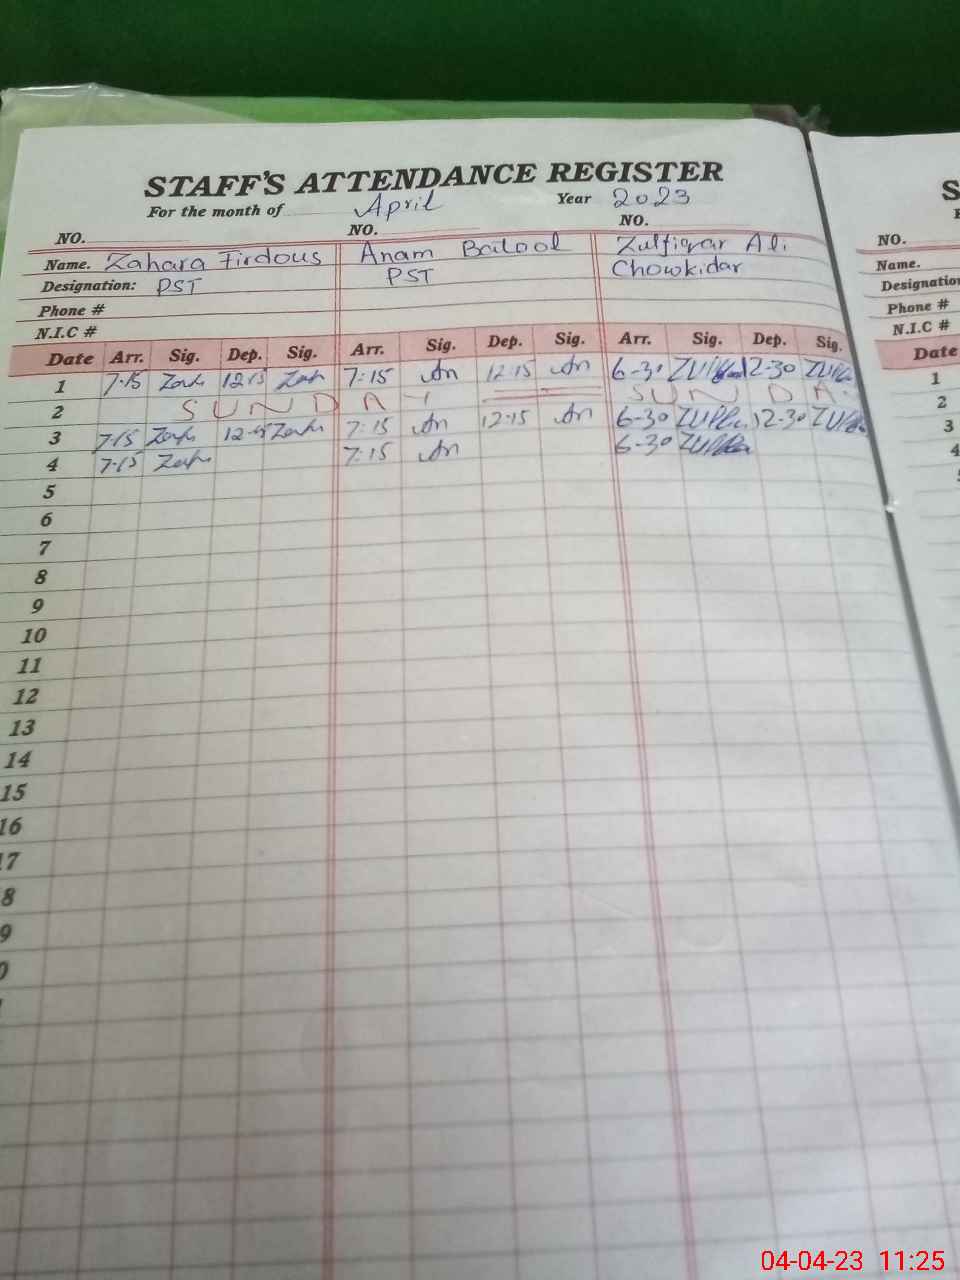 STAFF'S ATTENDANCE REGISTER
For the month of April Year 2023
NO. NO. NO.
Name. Zahara Firdous Anam Batool Zulfiqar Ali
Designation: PST PST Chowkidar
Phone #
N.I.C #
Date Arr. Sig. Dep. Sig. Arr. Sig. Dep. Sig. Arr. Sig. Dep. Sig.
1 7-15 Zah 12 15 Zah 7:15 An 12:15 An 6-30 12-30
2 SUNDAY SUNDA
3 7-15 Zah Zah 7:15 An 12:15 An 6-30 12-30
4 7-15 Zah 7:15 An 6-30
5
6
7
8
9
10
11
12
13
14
15
16
17
8
9
0
S
NO.
Name.
Designation
Phone #
N.I.C #
Date
1
2
3
4
04-04-23 11:25